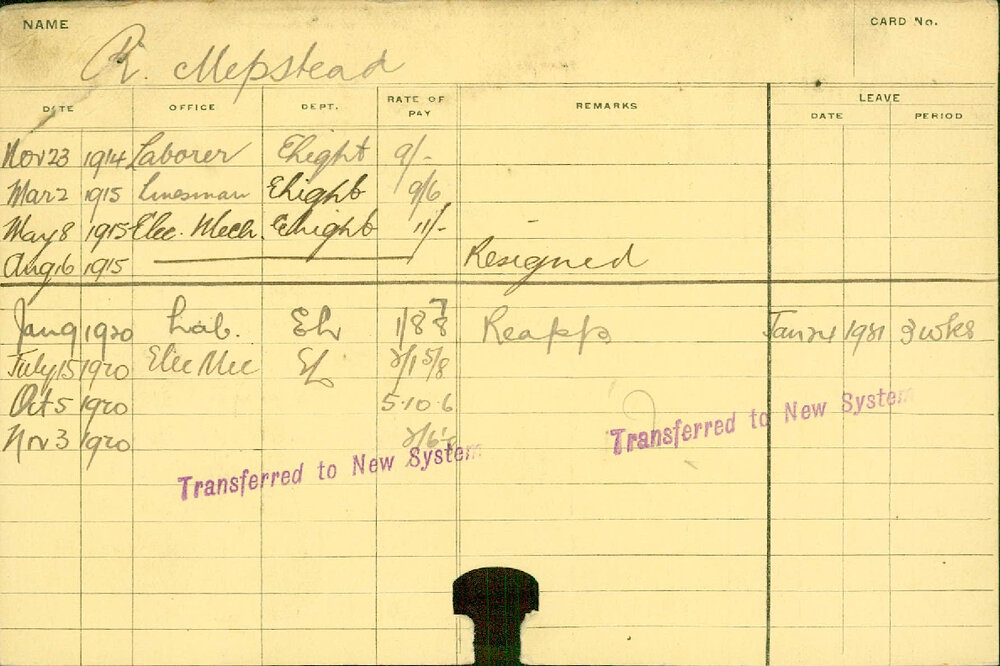 NAME
CARD No.
R. Mepstead
DATE OFFICE DEPT. RATE OF PAY REMARKS LEAVE
DATE PERIOD
Nov 23 1914 Laborer Elight 9/-
Mar 2 1915 Linesman Elight 9/6
May 8 1915 Elec. Mech. Elight 11/-
Aug 16 1915 Resigned
Jan 9 1920 Lab. EL 1/8 Reapp Jan 24 1921 3 wks
July 15 1920 Elec Mec EL 2/1 5/8
Oct 5 1920 5-10-6
Nov 3 1920
Transferred to New System
Transferred to New System